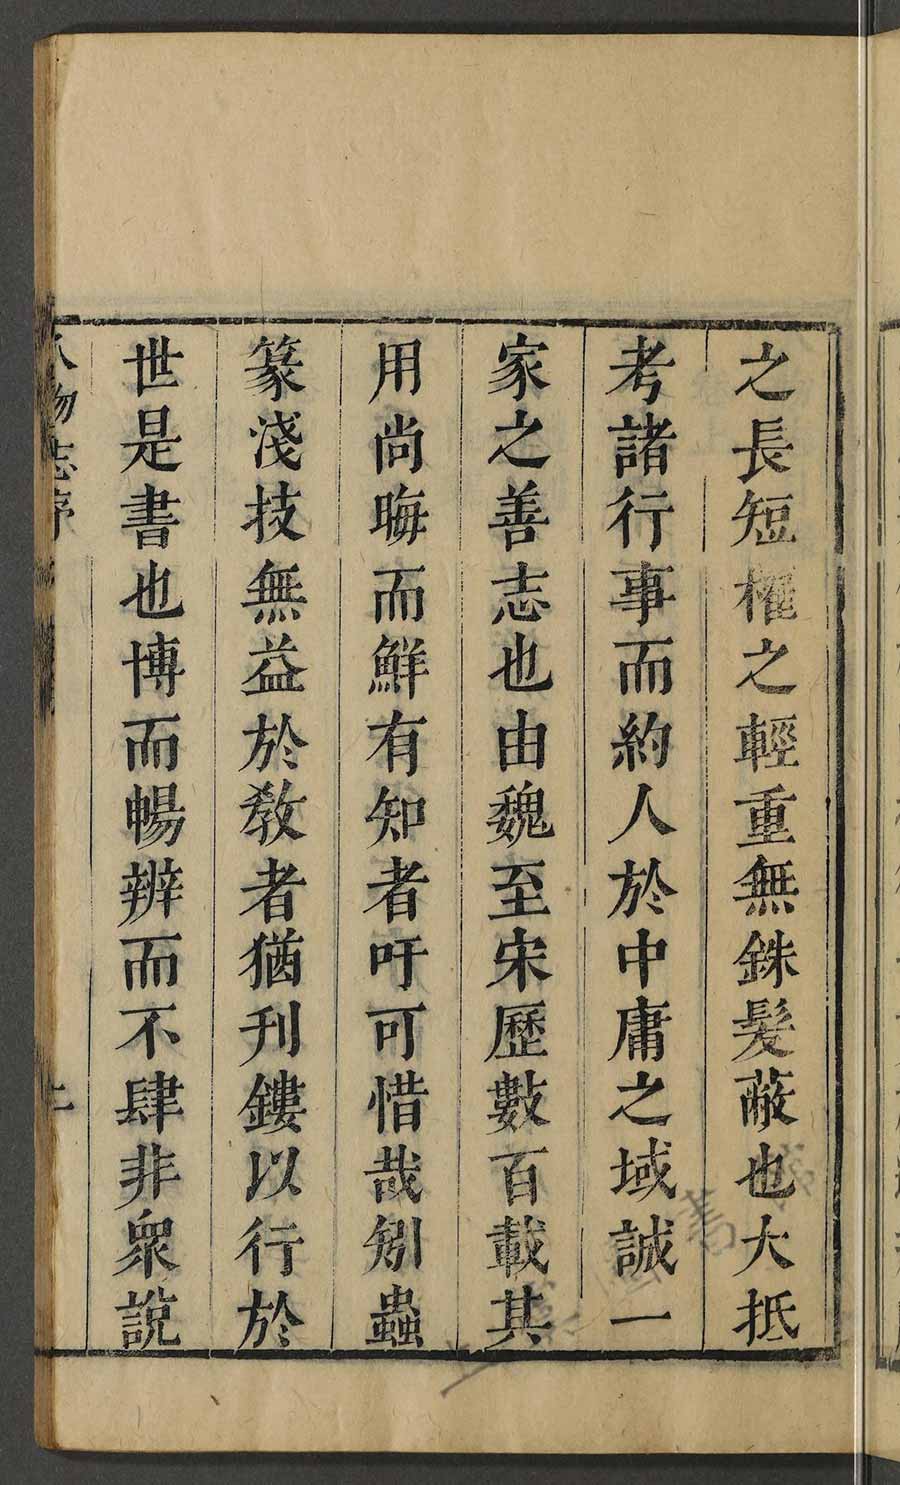 之長短權之輕重無銖髮蔽也大抵
考諸行事而約人於中庸之域誠一
家之善志也由魏至宋歷數百載其
用尚晦而鮮有知者吁可惜哉矧蟲
篆淺技無益於教者猶刊鏤以行於
世是書也博而暢辨而不肆非衆說
人物志序